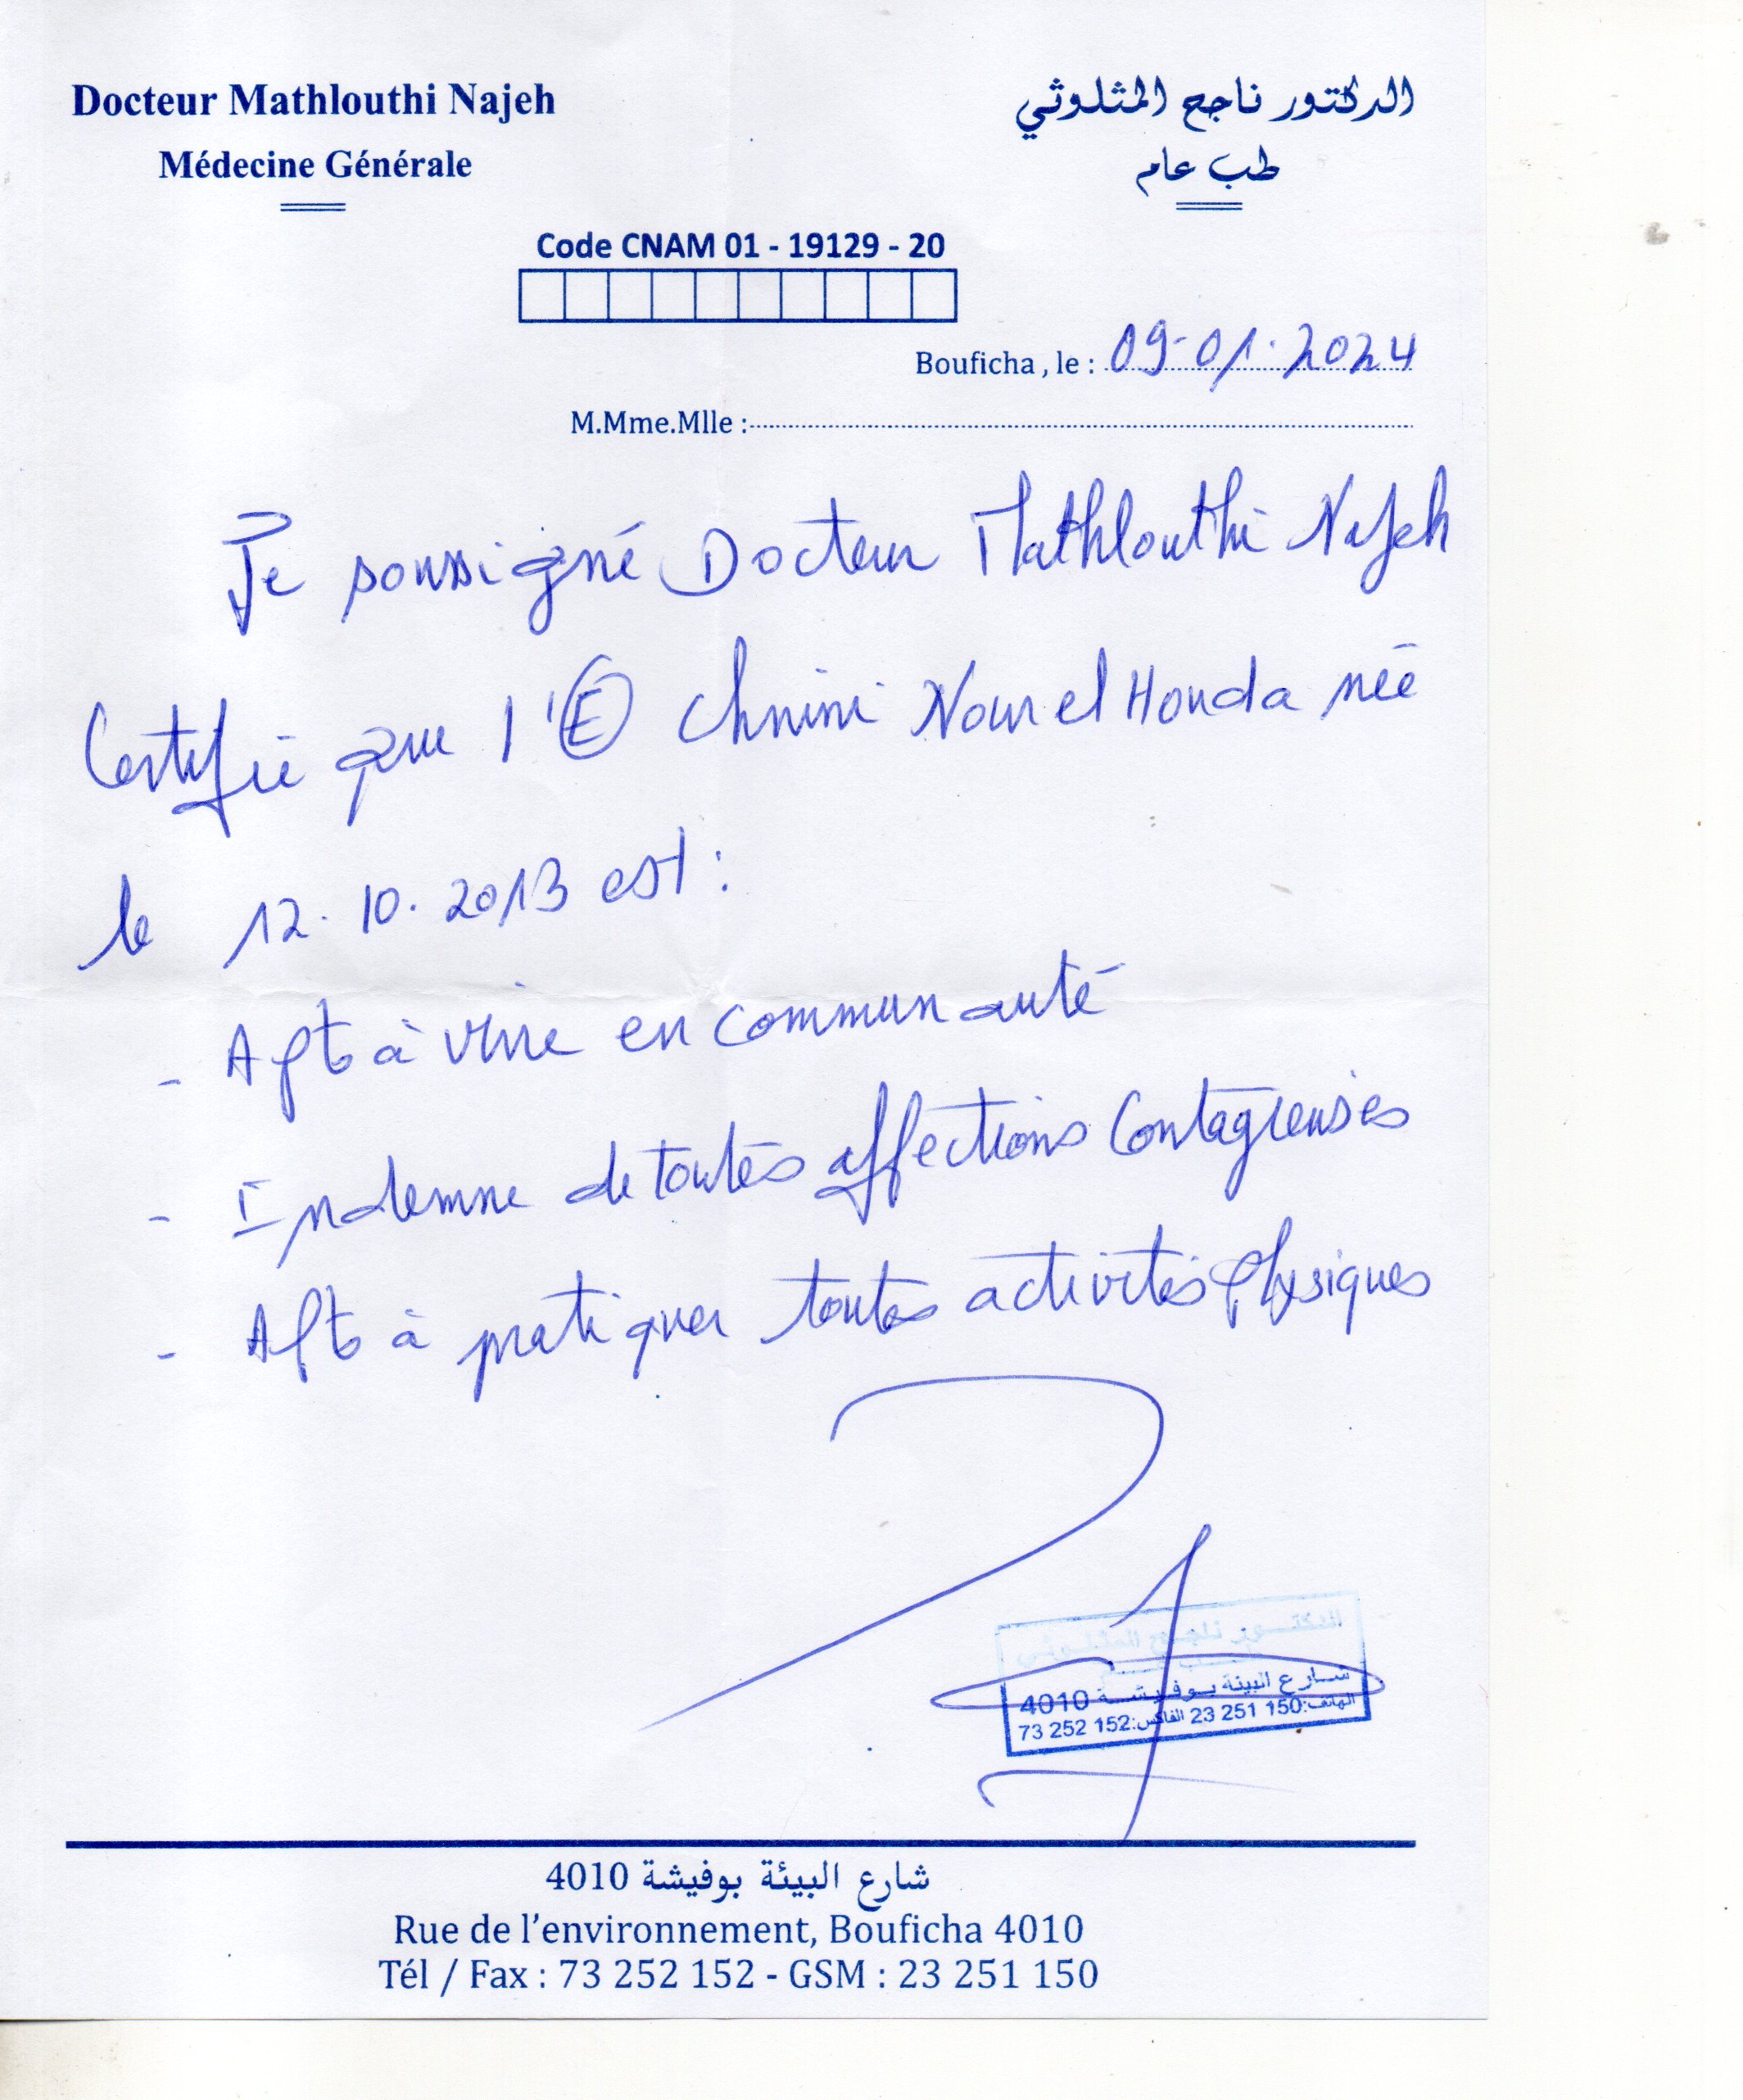 Docteur Mathlouthi Najeh
Médecine Générale
الدكتور ناجح المثلوثي
طب عام
Code CNAM 01 - 19129 - 20
Bouficha , le : 09-01-2024
M.Mme.Mlle :
Je soussigné Docteur Mathlouthi Najeh
Certifie que l'E Chnini Nour el Houda née
le 12.10.2013 est :
- Apte à vivre en communauté
- Indemne de toutes affections Contagieuses
- Apte à pratiquer toutes activités physiques
الدكتور ناجح المثلوثي
شارع البيئة بوفيشة 4010
الهاتف:150 251 23 الفاكس:152 252 73
شارع البيئة بوفيشة 4010
Rue de l'environnement, Bouficha 4010
Tél / Fax : 73 252 152 - GSM : 23 251 150